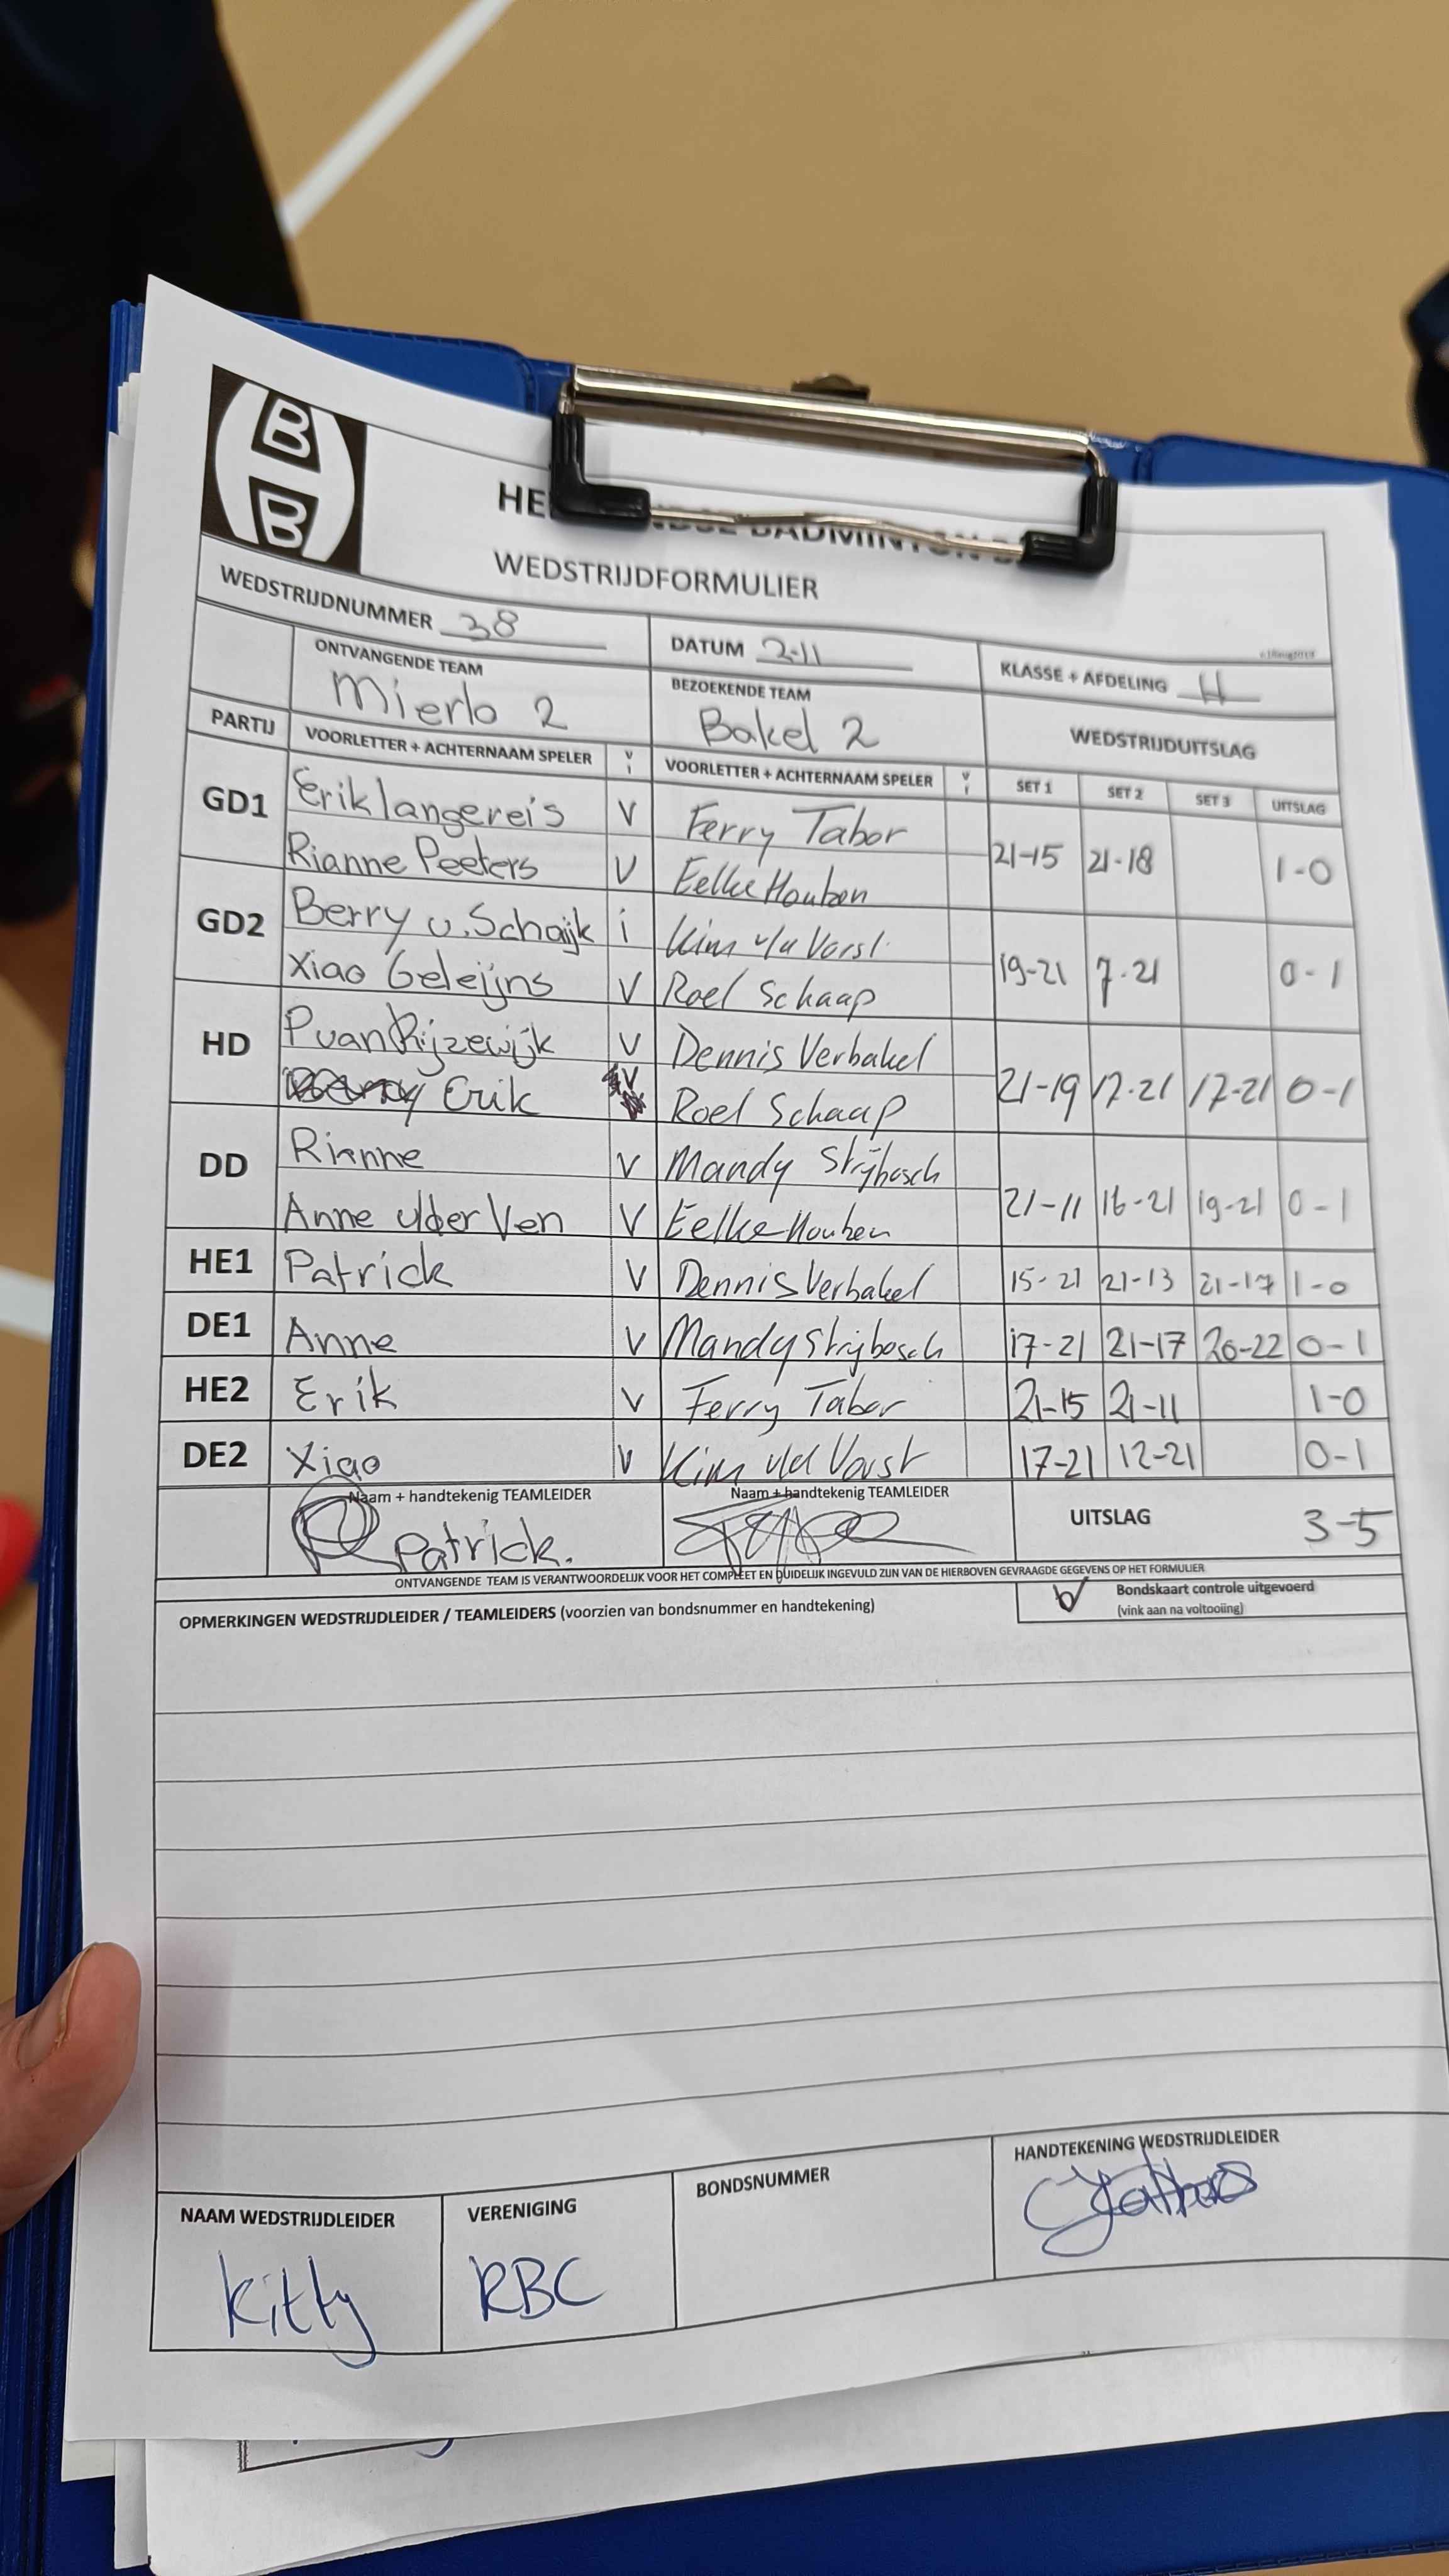 B
B
WEDSTRIJDFORMULIER
WEDSTRIJDNUMMER 38 DATUM 2-11 KLASSE + AFDELING H
ONTVANGENDE TEAM BEZOEKENDE TEAM
Mierlo 2 Bakel 2 WEDSTRIJDUITSLAG
PARTIJ VOORLETTER + ACHTERNAAM SPELER V i VOORLETTER + ACHTERNAAM SPELER V i SET 1 SET 2 SET 3 UITSLAG
GD1 Erik langereis V Ferry Tabor 21-15 21-18 1-0
Rianne Peeters V Eelke Houben
GD2 Berry v. Schaijk i Kim v/d Vorst 19-21 7-21 0-1
Xiao Geleijns V Roel Schaap
HD P van Rijzewijk V Dennis Verbakel 21-19 17-21 17-21 0-1
Erik V Roel Schaap
DD Rianne V Mandy Strijbosch 21-11 16-21 19-21 0-1
Anne v/der Ven V Eelke Houben
HE1 Patrick V Dennis Verbakel 15-21 21-13 21-17 1-0
DE1 Anne V Mandy Strijbosch 17-21 21-17 20-22 0-1
HE2 Erik V Ferry Tabor 21-15 21-11 1-0
DE2 Xiao V Kim v/d Vorst 17-21 12-21 0-1
Naam + handtekenig TEAMLEIDER Naam + handtekenig TEAMLEIDER UITSLAG 3-5
Patrick.
ONTVANGENDE TEAM IS VERANTWOORDELIJK VOOR HET COMPLEET EN DUIDELIJK INGEVULD ZIJN VAN DE HIERBOVEN GEVRAAGDE GEGEVENS OP HET FORMULIER
OPMERKINGEN WEDSTRIJDLEIDER / TEAMLEIDERS (voorzien van bondsnummer en handtekening) Bondskaart controle uitgevoerd
(vink aan na voltooiing)
NAAM WEDSTRIJDLEIDER VERENIGING BONDSNUMMER HANDTEKENING WEDSTRIJDLEIDER
Kitty RBC